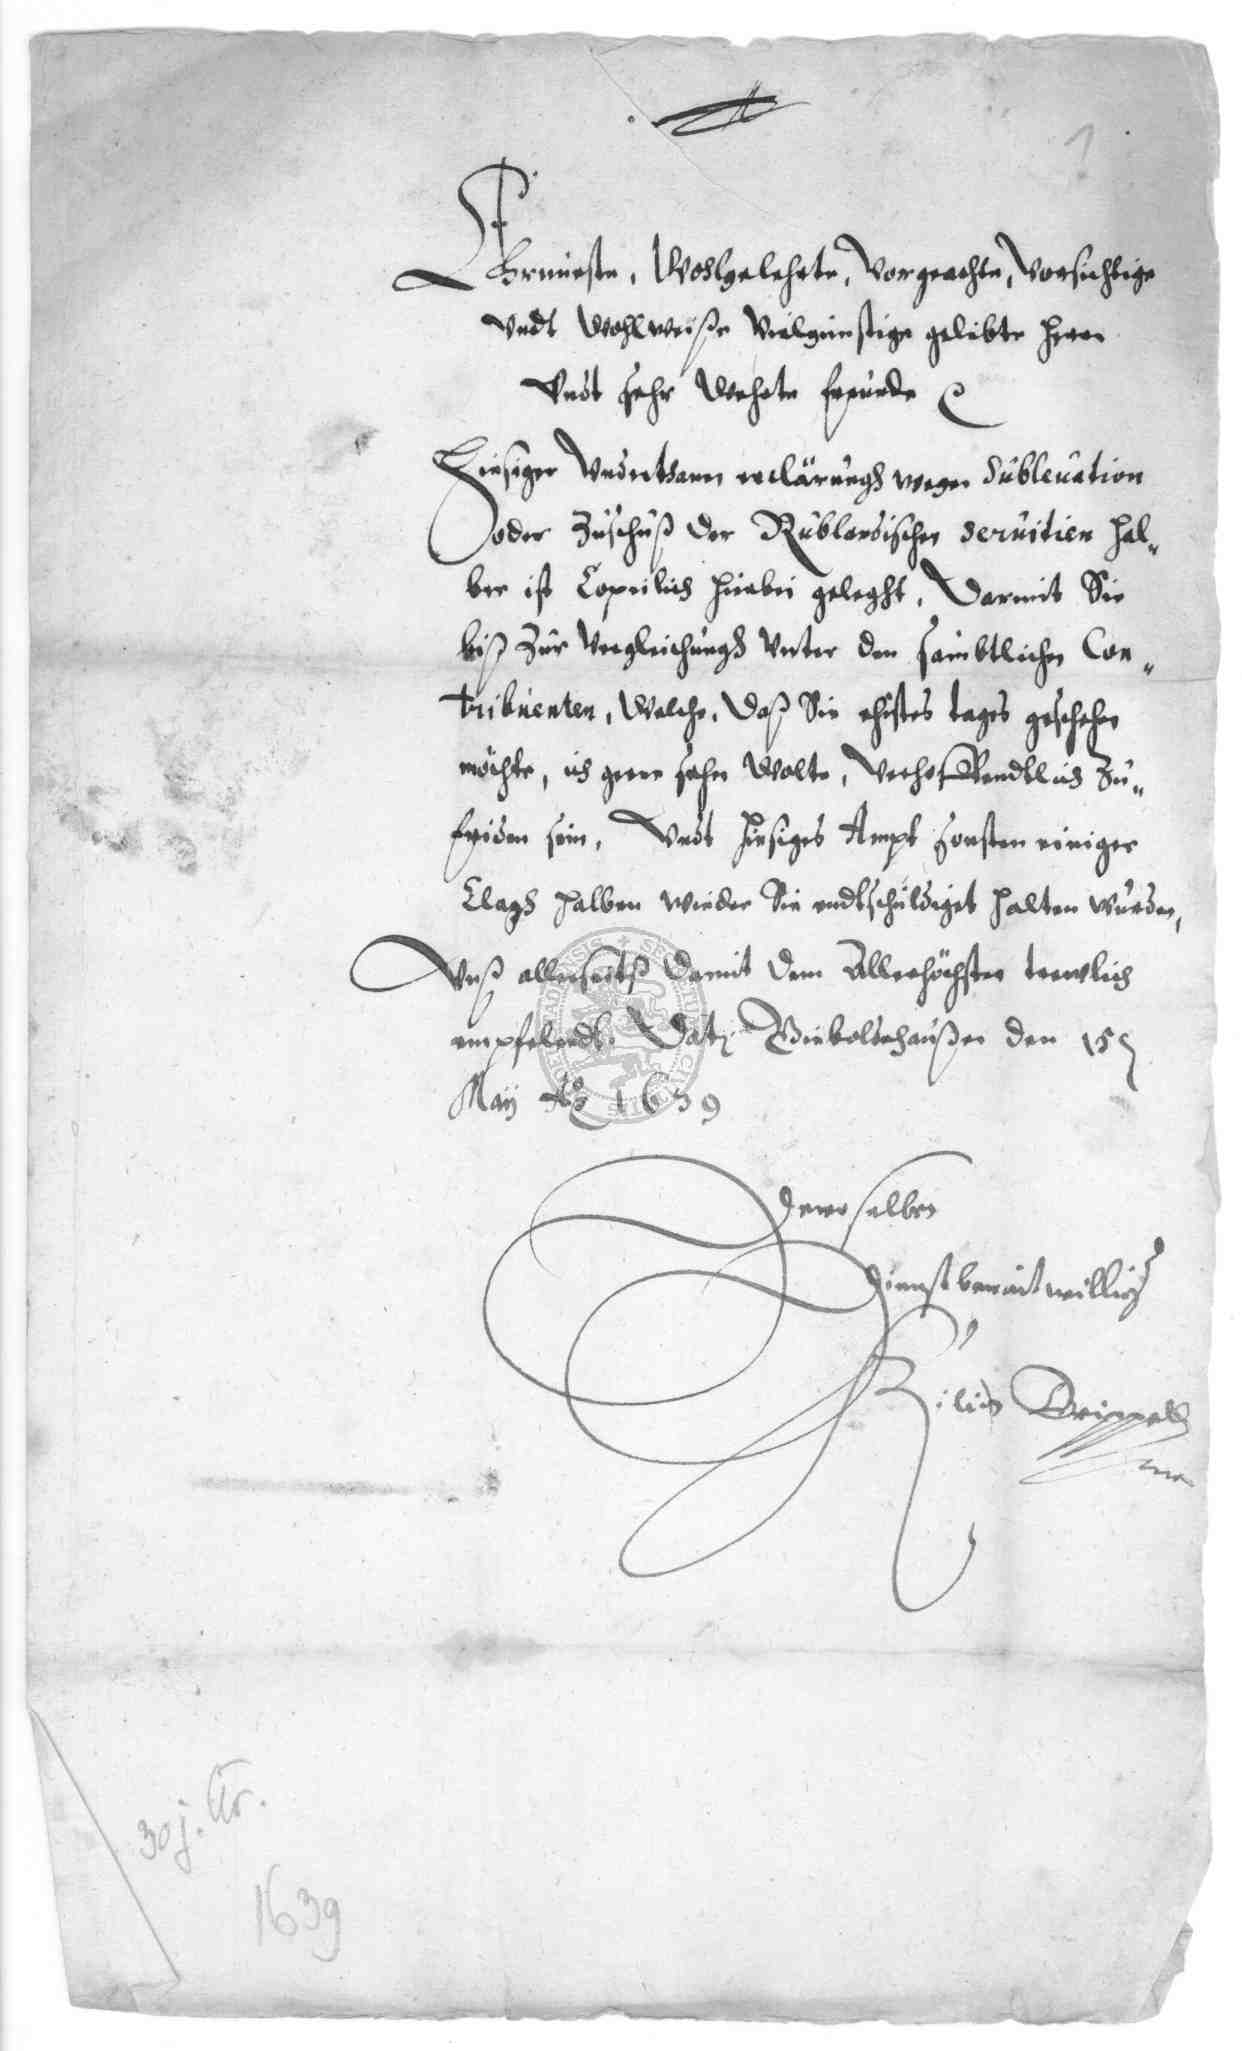 1
Ehrnueste, Wohlgelehrte, Vorgeachte, Vorsichtige
Vndt Wohlweiße Vielgünstige geliebte Herrn
Vndt sehr Wehrte freunde
Hiesiger Vnderthanen erclärungh wegen Subleuation
oder Zuschuß der Rüblandischen seruitien hal„
ber ist Copeilich hierbei geleght, Darmit Sie
biß Zur Vergleichungh Vnter den sämbtlichen Con„
tribuenten, Welche, daß Sie ehistes tages geschehen
möchte, ich gerne sehen Wolte, Verhoffendtlich Zu„
friden sein, Vndt hiesiges Ampt sonsten einiger
Clagh halben wieder Sie endtschuldiget halten wurden,
Vnß allerseitß damit dem Allerhöchsten trewlich
empfelendt. Dat. Giebolthaußen den 15
Maij Ao 1639
Deroselben
Dienstbereitwilliger
30j. Kr.
1639